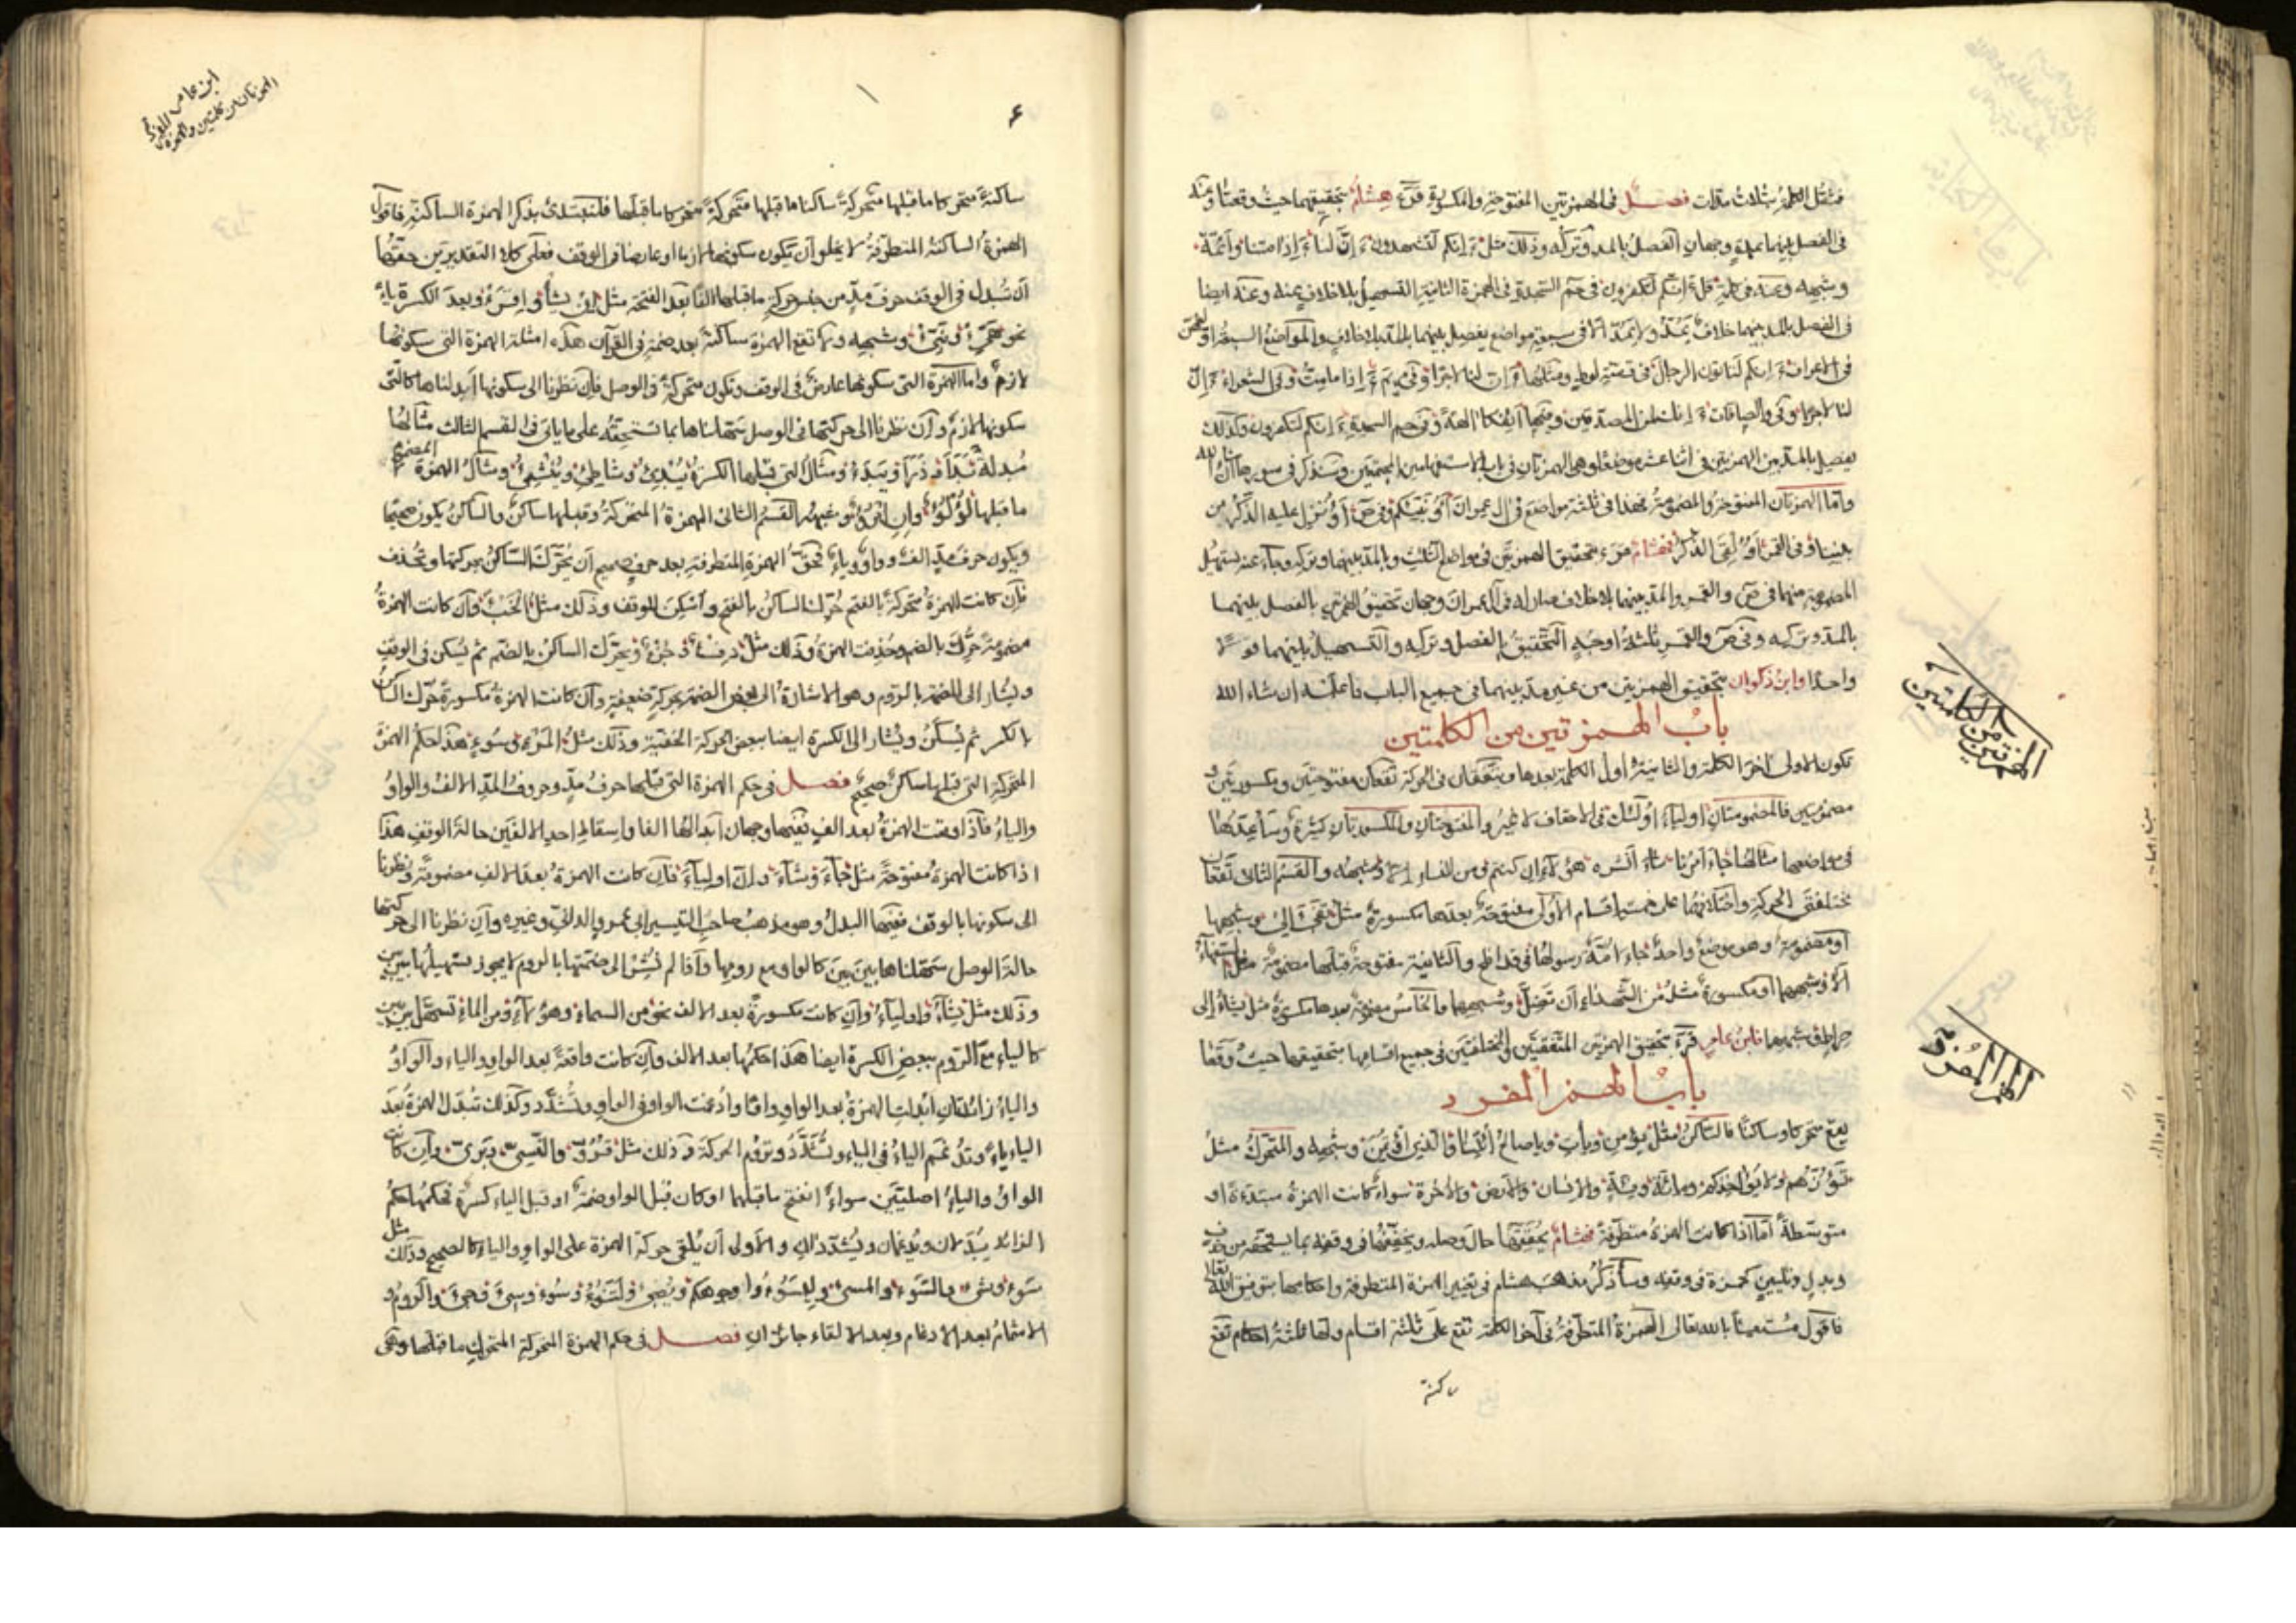 فتنقل الكلمة بثلاث مدات فصل فى الهمزتين المفتوحة والمكسورة قرء هشام بتحقيقهما حيث وقعتا وعنه
فى الفصل بينهما بمدة وجهان الفصل بالمد وتركه وذلك مثل ءانكم لتشهدون ءان لنا ءاذا متنا وأئمة
وشبهه وعنه فى كلمة قل ءانكم لتكفرون فى حم السجدة فى الهمزة الثانية التسهيل بلا خلاف عنه وعنه ايضا
فى الفصل بالمد بينهما خلاف يمد ولا يمد الا فى سبعة مواضع يفصل بينهما بالمد بلا خلاف والمواضع السبعة او لهن
فى الاعراف ءانكم لتاتون الرجال فى قصة لوط ومثلها ءان لنا لاجرا وفى مريم ءاذا مامت وفى الشعراء ءان
لنا لاجرا وفى والصافات ءانك لمن المصدقين وفيها أئفكا الهة وفى حم السجدة ءانكم لتكفرون وكذلك
يفصل بالمد بين الهمزتين فى اثنا عشر موضعا وهى الهمزتان فى باب الاستفهامين المجتمعين وسنذكر فى سورها ان شاء الله
واما الهمزتان المفتوحة والمضمومة فهما فى ثلثة مواضع فى ال عمران أؤنبئكم وفى ص أؤنزل عليه الذكر من
بيننا وفى القمر أؤلقى الذكر فهشام قرء بتحقيق الهمزتين فى مواضع الثلث وبالمد بينهما وتركه وجاء عنه تسهيل
المضمومة منهما فى ص والقمر والمد بينهما بلا خلاف فصار له فى آل عمران وجهان تحقيق الهمزتين بالفصل بينهما
بالمد وتركه وفى ص والقمر ثلثة اوجه التحقيق بالفصل وتركه والتسهيل بينهما قولا
واحدا وابن ذكوان بتحقيق الهمزتين من غير مد بينهما فى جميع الباب فاعلمه ان شاء الله
باب الهمزتين من الكلمتين
تكون الاولى آخر الكلمة والثانية اول الكلمة بعدها ويتفقان فى الحركة تقعان مفتوحتين ومكسورتين و
مضمومتين فالمضمومتان اولياء اولئك فى الاحقاف لا غير والمفتوحتان والمكسورتان كثيرة وساعدها
فى مواضعها مثالها جاء امرنا شاء انشره هؤلاء ان كنتم ومن النساء الا وشبهه والقسم الثانى تقعان
مختلفتى الحركة واختلافهما على خمسة اقسام الاول مفتوحة بعدها مكسورة مثل تفىء الى وشبهها
او مضمومة وهو موضع واحد جاء امة رسولها فى قد افلح والثانية مفتوحة قبلها مضمومة مثل السفهاء
الا وشبهها او مكسورة مثل من الشهداء ان تضل وشبهها والخامس مضمومة بعدها مكسورة مثل يشاء الى
صراط وشبهها فابن عامر قرء بتحقيق الهمزتين المتفقتين والمختلفتين فى جميع اقسامها بتحقيقهما حيث وقعا
باب الهمز المفرد
يقع متحركا وساكنا فالساكن مثل يؤمن ويأت ويا صالح ائتنا والذى اؤتمن وشبهه والمتحرك مثل
تؤزهم ولا يؤاخذكم ومائة وفئة والانسان والارض والاخرة سواء كانت الهمزة مبتدءة او
متوسطة اما اذا كانت الهمزة متطرفة فهشام يحققها حال وصله ويخففها فى وقفه بما يستحقه من حذف
وبدل وتليين كحمزة فى وقفه وساذكر مذهب هشام فى تغيير الهمزة المتطرفة واحكامها بتوفيق الله تعالى
فاقول مستعينا بالله تعالى الهمزة المتطرفة فى آخر الكلمة تقع على ثلثة اقسام ولها ثلثة احكام تقع
ساكنة
الهمزتين من الكلمتين
الهمز المفرد
ابن عامر
الهمزتان من كلمتين والهمزة المفرد
ساكنة متحركا ما قبلها متحركة ساكنا ما قبلها متحركة متحركا ما قبلها فلنبتدئ بذكر الهمزة الساكنة فاقول
الهمزة الساكنة المتطرفة لا يخلو ان تكون سكونها لازما او عارضا فى الوقف فعلى كلا التقديرين حقها
ان تبدل فى الوقف حرف مد من جنس حركة ما قبلها الفا بعد الفتحة مثل ان يشأ واقرأ وبعد الكسرة ياء
نحو هيئ ونبئ وشبهه ولا تقع الهمزة ساكنة بعد ضمة فى القرآن هذه امثلة الهمزة التى سكونها
لازم واما الهمزة التى سكونها عارض فى الوقف وتكون متحركة فى الوصل فان نظرنا الى سكونها ابدلناها كالتى
سكونها لازم وان نظرنا الى حركتها فى الوصل سهلناها بما تستحقه على ما ياتى فى القسم الثالث مثالها
مبدلة بدأ وذرأ ويبدأ ومثال التى قبلها الكسرة يبدئ وشاطئ وينشئ ومثال الهمزة المضموم
ما قبلها لؤلؤ وان امرؤ وغيره القسم الثانى الهمزة المتحركة وقبلها ساكن والساكن يكون صحيحا
ويكون حرف مد الف وواو وياء فحق الهمزة المتطرفة بعد حرف صحيح ان يحرك الساكن بحركتها وتحذف
فان كانت الهمزة متحركة بالفتح حرك الساكن بالفتح واسكن للوقف وذلك مثل الخبء وان كانت الهمزة
مضمومة حرك بالضم وحذفت الهمزة وذلك مثل دفء وجزء ويحرك الساكن بالضم ثم يسكن فى الوقف
ويشار الى الضمة بالروم وهو الاشارة الى بعض الضمة بحركة ضعيفة وان كانت الهمزة مكسورة حرك الساكن
بالكسر ثم يسكن ويشار الى الكسرة ايضا ببعض الحركة الخفية وذلك مثل المرء وسوء هذا حكم الهمزة
المتحركة التى قبلها ساكن صحيح فصل فى حكم الهمزة التى قبلها حرف مد وحروف المد الالف والواو
والياء فاذا وقعت الهمزة بعد الف ففيها وجهان ابدالها الفا واسقاط احد الالفين حالة الوقف هذا
اذا كانت الهمزة مفتوحة مثل جاء وشاء واولياء فان كانت الهمزة بعد الالف مضمومة ونظرنا
الى سكونها بالوقف ففيها البدل وهو مذهب صاحب التيسير ابى عمرو الدانى وغيره وان نظرنا الى حركتها
حالة الوصل سهلناها بين بين كالواو مع رومها واذا لم نشر الى ضمتها بالروم لا يجوز تسهيلها بين بين
وذلك مثل يشاء واولياء وان كانت مكسورة بعد الالف نحو من السماء وهؤلاء ومن الماء تسهل بين بين
كالياء مع الروم ببعض الكسرة ايضا هذا حكمها بعد الالف وان كانت واقعة بعد الواو والياء والواو
والياء زائدتان ابدلت الهمزة بعد الواو واوا وادغمت الواو فى الواو وتشدد وكذلك تبدل الهمزة بعد
الياء ياء وتدغم الياء فى الياء وتشدد وتروم الحركة وذلك مثل قروء والنسىء وبرىء وان كانت
الواو والياء اصليتين سواء انفتح ما قبلهما او كان قبل الواو ضمة او قبل الياء كسرة فحكمهما حكم
الزائد يبدلان ويدغمان ويشدد والاولى ان يلقى حركة الهمزة على الواو والياء كالصحيح وذلك مثل
سوء وشىء والسوء والمسىء وليسوءوا وجوهكم ويضىء ولتنوء وسوء وسىء وجىء والروم و
الاشمام بعد الادغام وبعد الالقاء جائزان فصل فى حكم الهمزة المتحركة المتحرك ما قبلها وهى